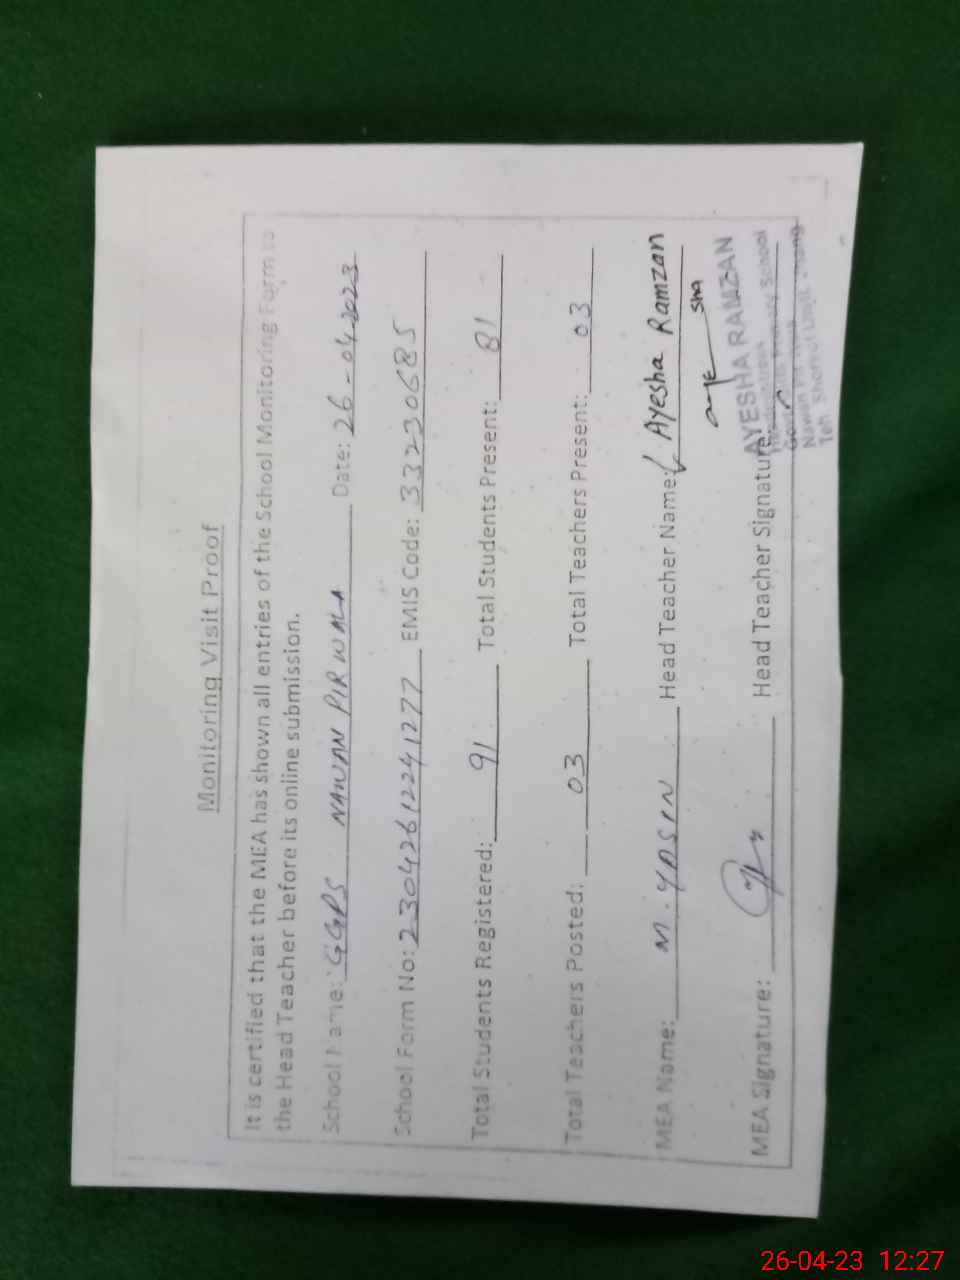 Monitoring Visit Proof
It is certified that the MEA has shown all entries of the School Monitoring Form to
the Head Teacher before its online submission.
School Name: GGPS NAWAN PIR WALA Date: 26-04-2023
School Form No: 23042612241277 EMIS Code: 33230685
Total Students Registered: 91 Total Students Present: 81
Total Teachers Posted: 03 Total Teachers Present: 03
MEA Name: M. YASIN Head Teacher Name: Ayesha Ramzan
MEA Signature: Head Teacher Signature:
AYESHA RAMZAN
Primary School
Nawan Pir
Teh. Shorkot Distt. Jhang
26-04-23 12:27